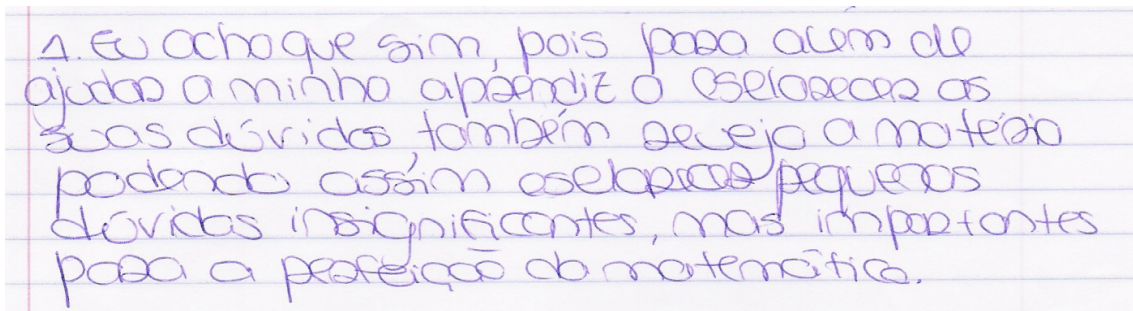 1. Eu acho que sim, pois para alem de
ajudar a minha aprendiz a esclarecer as
suas dúvidas, também revejo a matéria
podendo assim esclarecer pequenas
dúvidas insignificantes, mas importantes
para a perfeição da matemática.